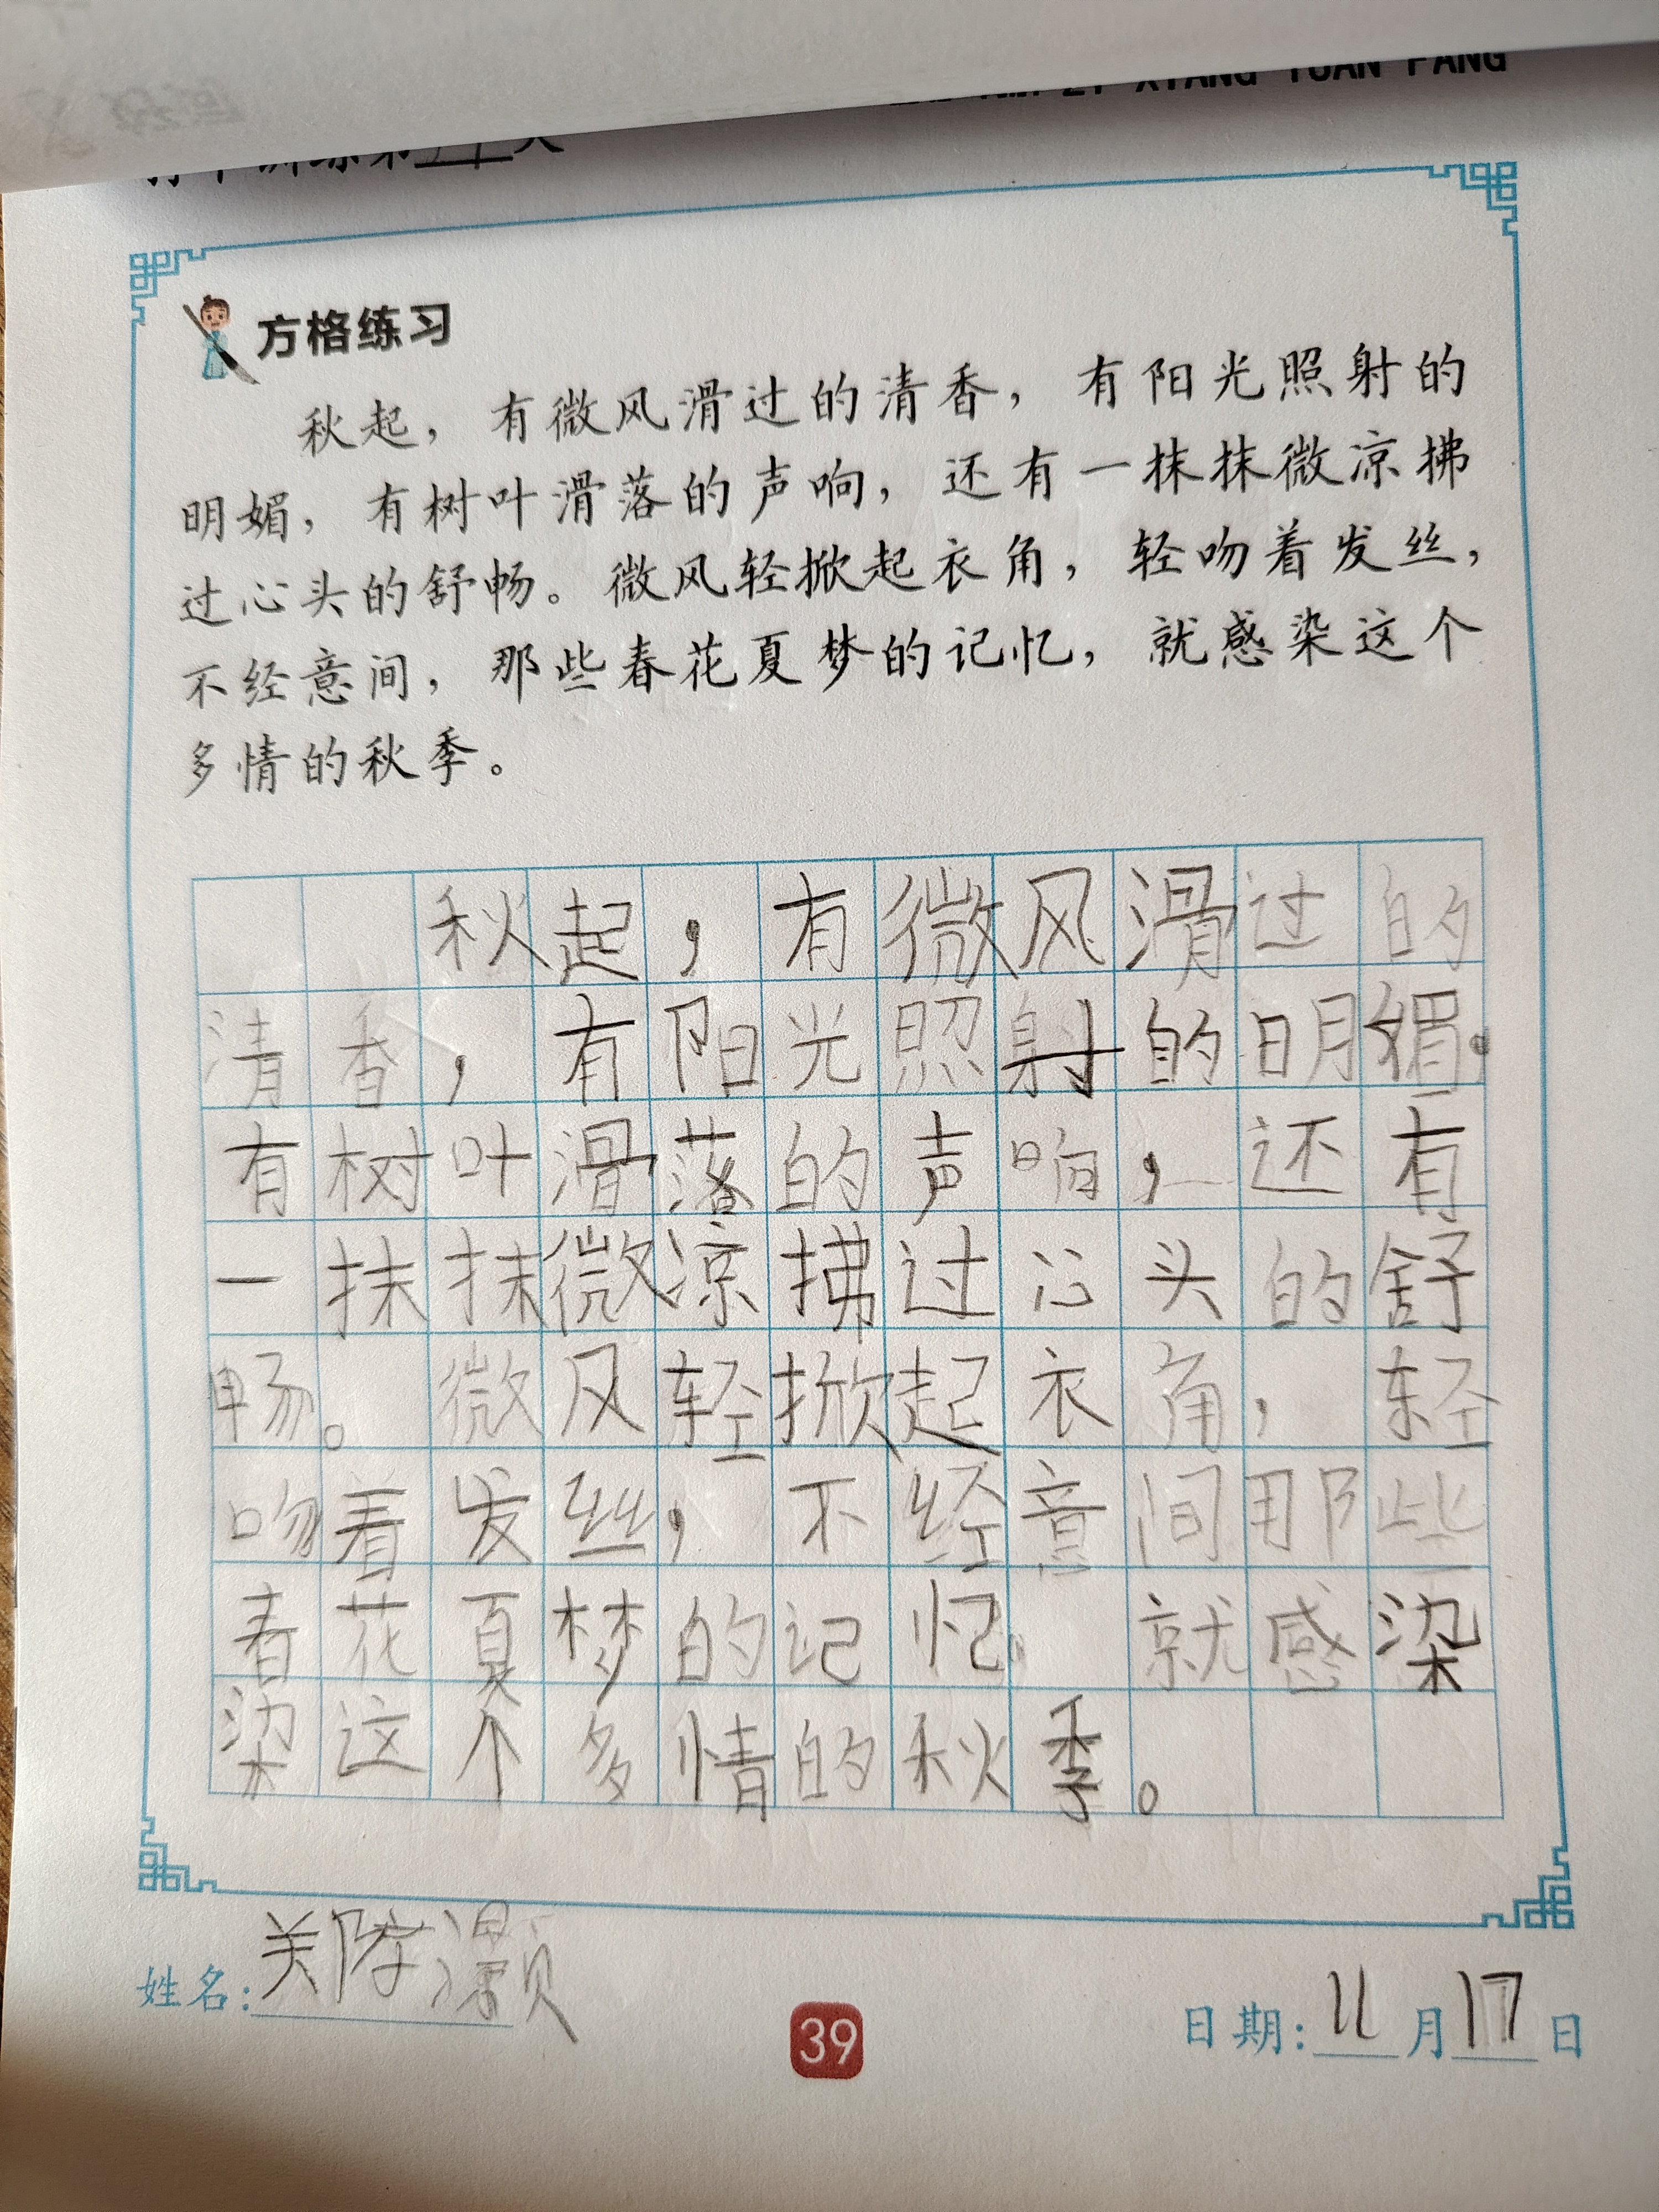 XIANG YUAN FANG
方格练习
秋起，有微风滑过的清香，有阳光照射的
明媚，有树叶滑落的声响，还有一抹抹微凉拂
过心头的舒畅。微风轻掀起衣角，轻吻着发丝，
不经意间，那些春花夏梦的记忆，就感染这个
多情的秋季。
秋起，有微风滑过的
清香，有阳光照射的明媚。
有树叶滑落的声响，还有
一抹抹微凉拂过心头的舒
畅。微风轻掀起衣角，轻
吻着发丝，不经意间那些
春花夏梦的记忆。就感染
染这个多情的秋季。
姓名：关
39
日期：11月17日